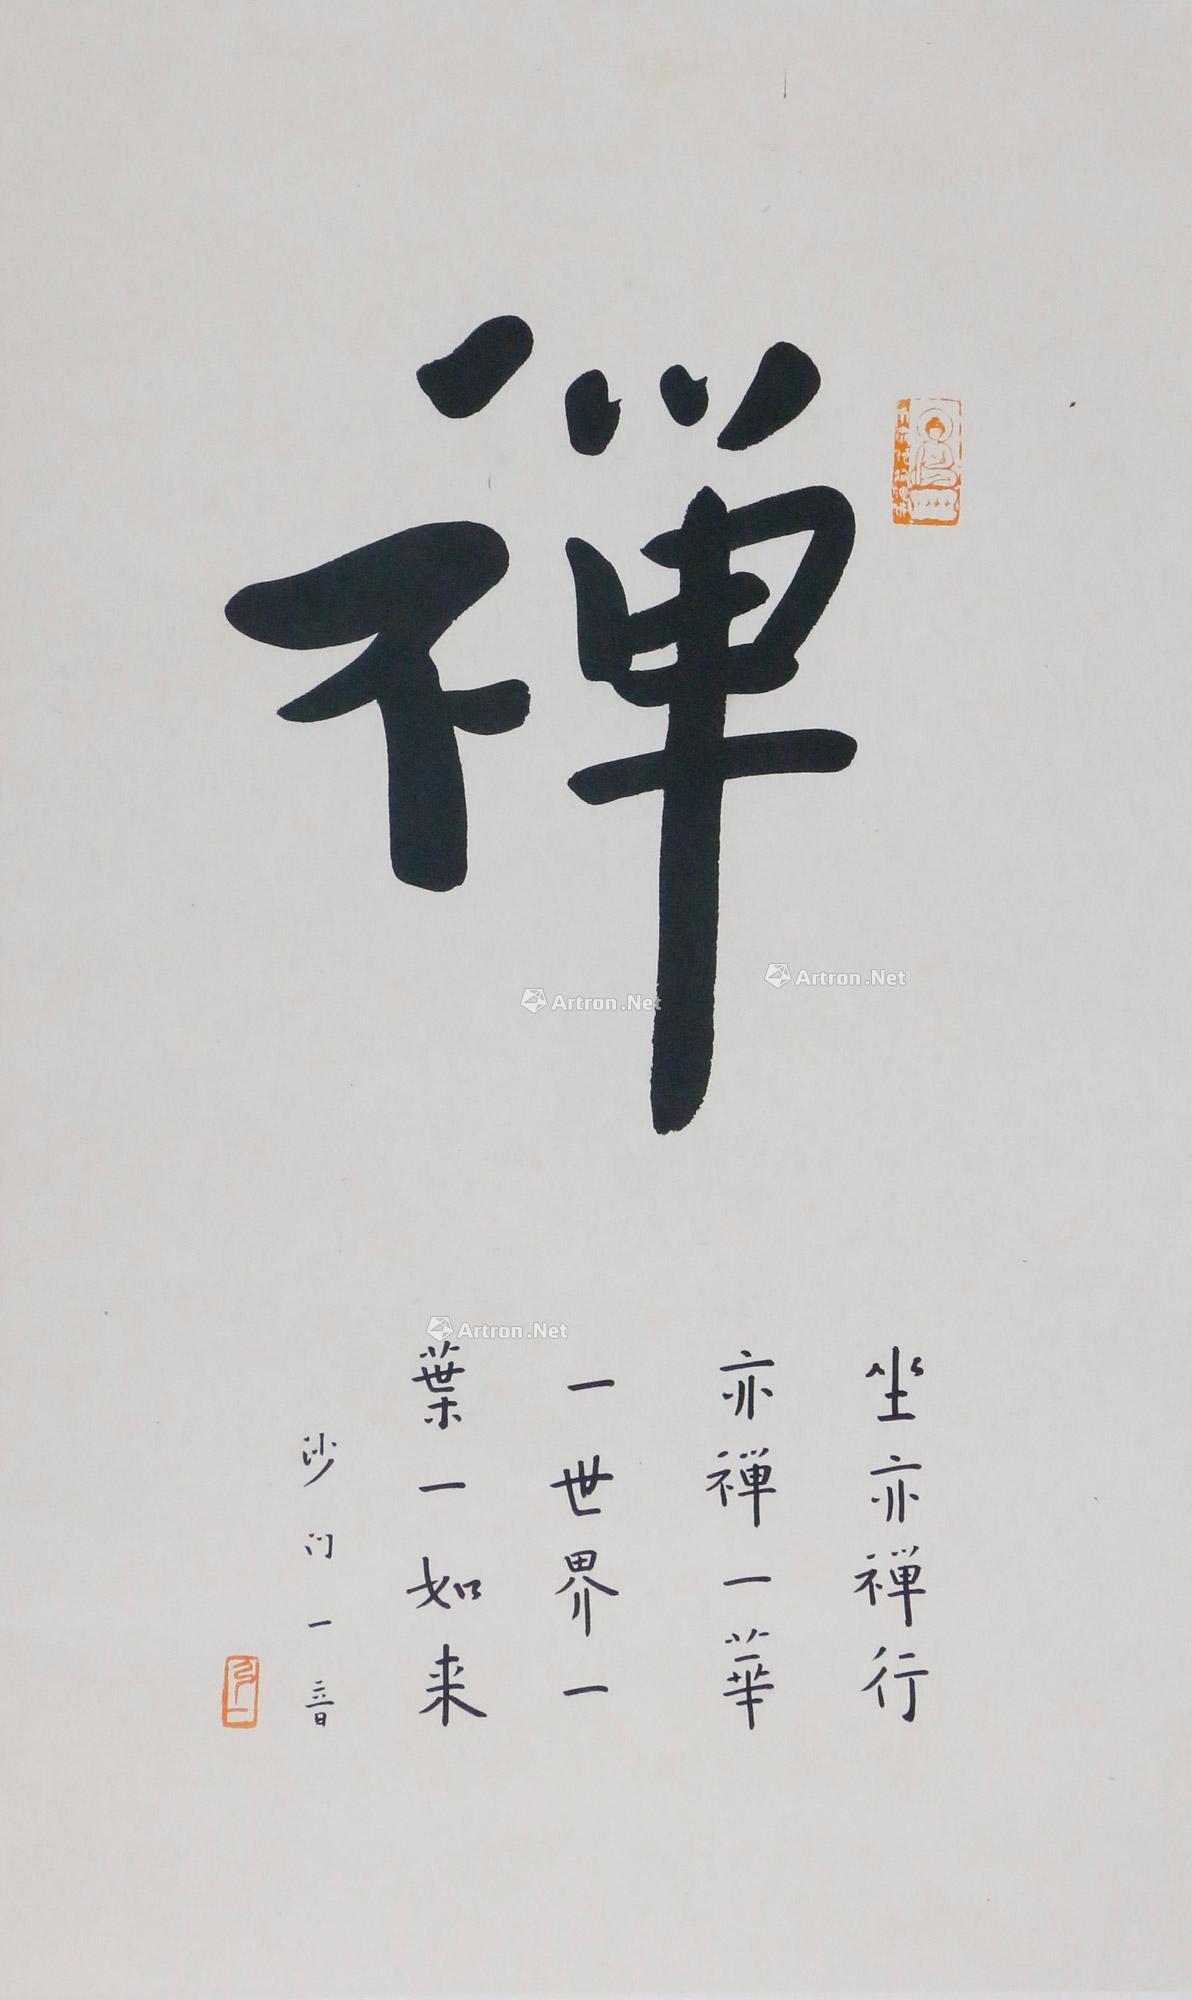 禅
坐亦禅行
亦禅一華
一世界一
葉一如来
沙门一音
Artron.Net
Artron.Net
Artron.Net